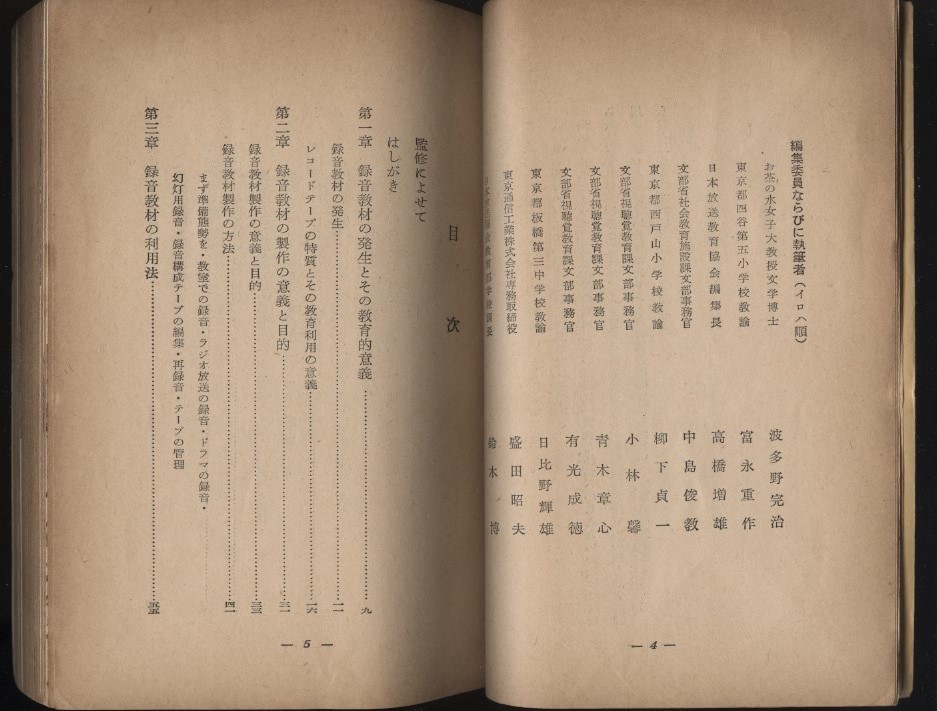 編集委員ならびに執筆者(イロハ順)
お茶の水女子大教授文学博士 波多野完治
東京都四谷第五小学校教諭 富永重作
日本放送教育協会編集長 高橋増雄
文部省社会教育施設課文部事務官 中島俊教
東京都西戸山小学校教諭 柳下貞一
文部省視聴覚教育課文部事務官 小林馨
文部省視聴覚教育課文部事務官 青木章心
文部省視聴覚教育課文部事務官 有光成徳
東京都板橋第三中学校教諭 日比野輝雄
東京通信工業株式会社専務取締役 盛田昭夫
鈴木博
— 4 —
目次
監修によせて
はしがき
第一章 録音教材の発生とその教育的意義 九
録音教材の発生 一一
レコードテープの特質とその教育利用の意義 一六
第二章 録音教材の製作の意義と目的 三一
録音教材製作の意義と目的 三三
録音教材製作の方法 四一
まず準備態勢を・教室での録音・ラジオ放送の録音・ドラマの録音・
幻灯用録音・録音構成テープの編集・再録音・テープの管理
第三章 録音教材の利用法 五五
— 5 —